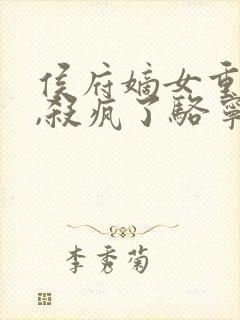 侯府嫡女重
,杀疯了骆寧
李秀菊